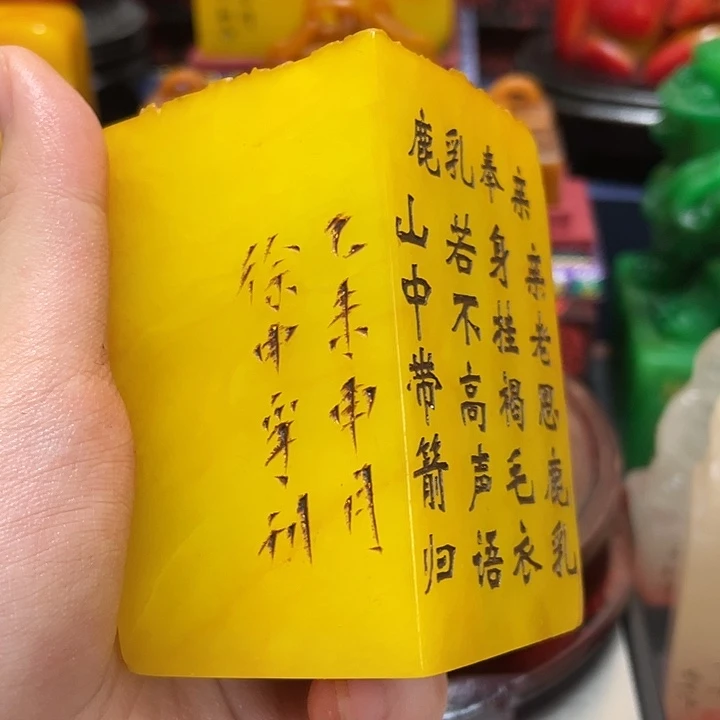 鹿乳奉亲
亲老思鹿乳
身挂褐毛衣
若不高声语
山中带箭归
乙未月
徐中刻